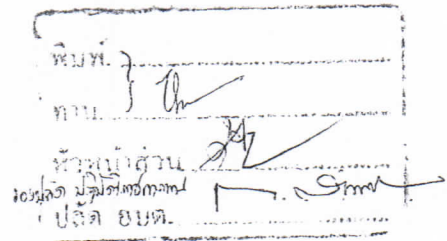 พิมพ์
ทาน
หัวหน้าส่วน
รองปลัด ปฏิบัติราชการแทน
ปลัด อบต.